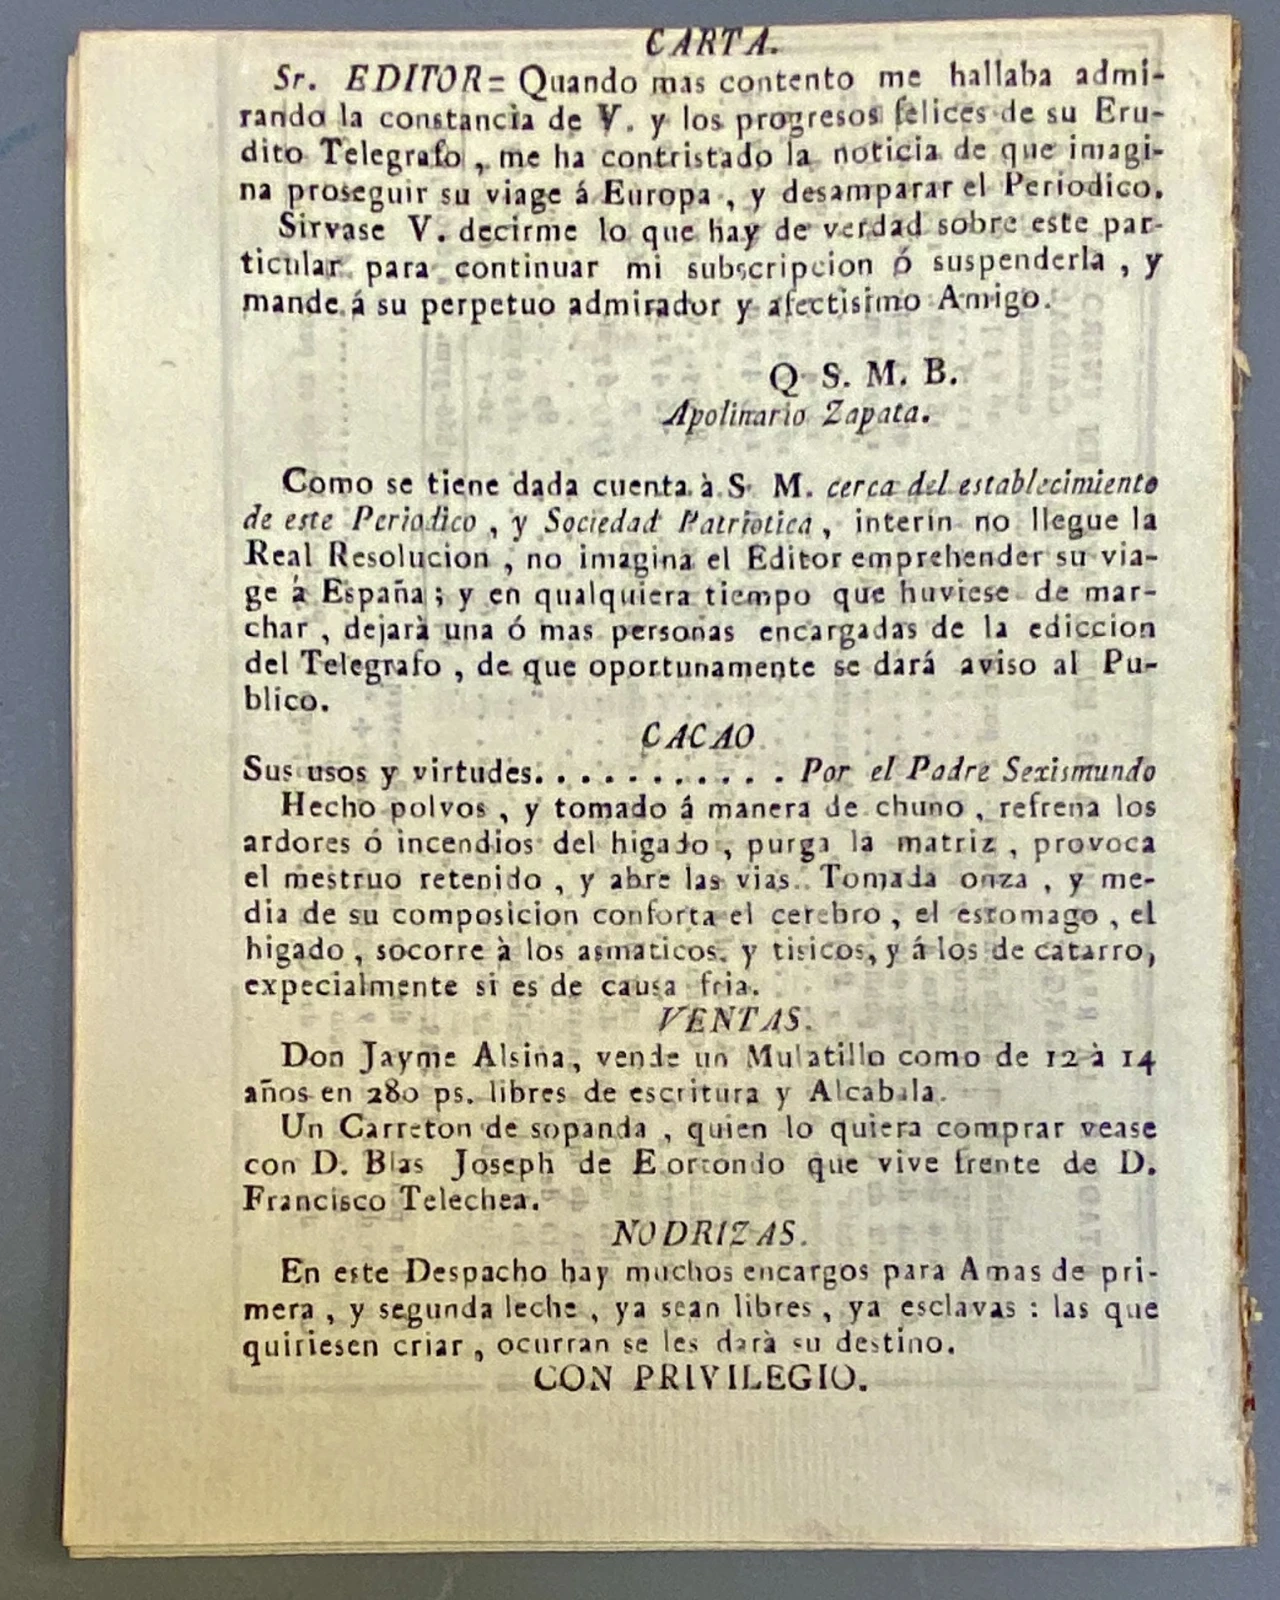 CARTA.
Sr. EDITOR= Quando mas contento me hallaba admi-
rando la constancia de V. y los progresos felices de su Eru-
dito Telegrafo , me ha contristado la noticia de que imagi-
na proseguir su viage á Europa , y desamparar el Periodico.
Sirvase V. decirme lo que hay de verdad sobre este par-
ticular para continuar mi subscripcion ó suspenderla , y
mande á su perpetuo admirador y afectisimo Amigo.
Q S. M. B.
Apolinario Zapata.
Como se tiene dada cuenta à S M. cerca del establecimiento
de este Periodico , y Sociedad Patriotica , interin no llegue la
Real Resolucion , no imagina el Editor emprehender su via-
ge á España ; y en qualquiera tiempo que huviese de mar-
char , dejarà una ó mas personas encargadas de la ediccion
del Telegrafo , de que oportunamente se dará aviso al Pu-
blico.
CACAO
Sus usos y virtudes. . . . . . . . . . . Por el Padre Sexismundo
Hecho polvos , y tomado á manera de chuno , refrena los
ardores ó incendios del higado , purga la matriz , provoca
el mestruo retenido , y abre las vias. Tomada onza , y me-
dia de su composicion conforta el cerebro , el estomago , el
higado , socorre à los asmaticos. y tisicos, y á los de catarro,
expecialmente si es de causa fria.
VENTAS.
Don Jayme Alsina, vende un Mulatillo como de 12 à 14
años en 280 ps. libres de escritura y Alcabala.
Un Carreton de sopanda , quien lo quiera comprar vease
con D. Blas Joseph de Eortondo que vive frente de D.
Francisco Telechea.
NODRIZAS.
En este Despacho hay muchos encargos para Amas de pri-
mera , y segunda leche , ya sean libres , ya esclavas : las que
quiriesen criar , ocurran se les darà su destino.
CON PRIVILEGIO.